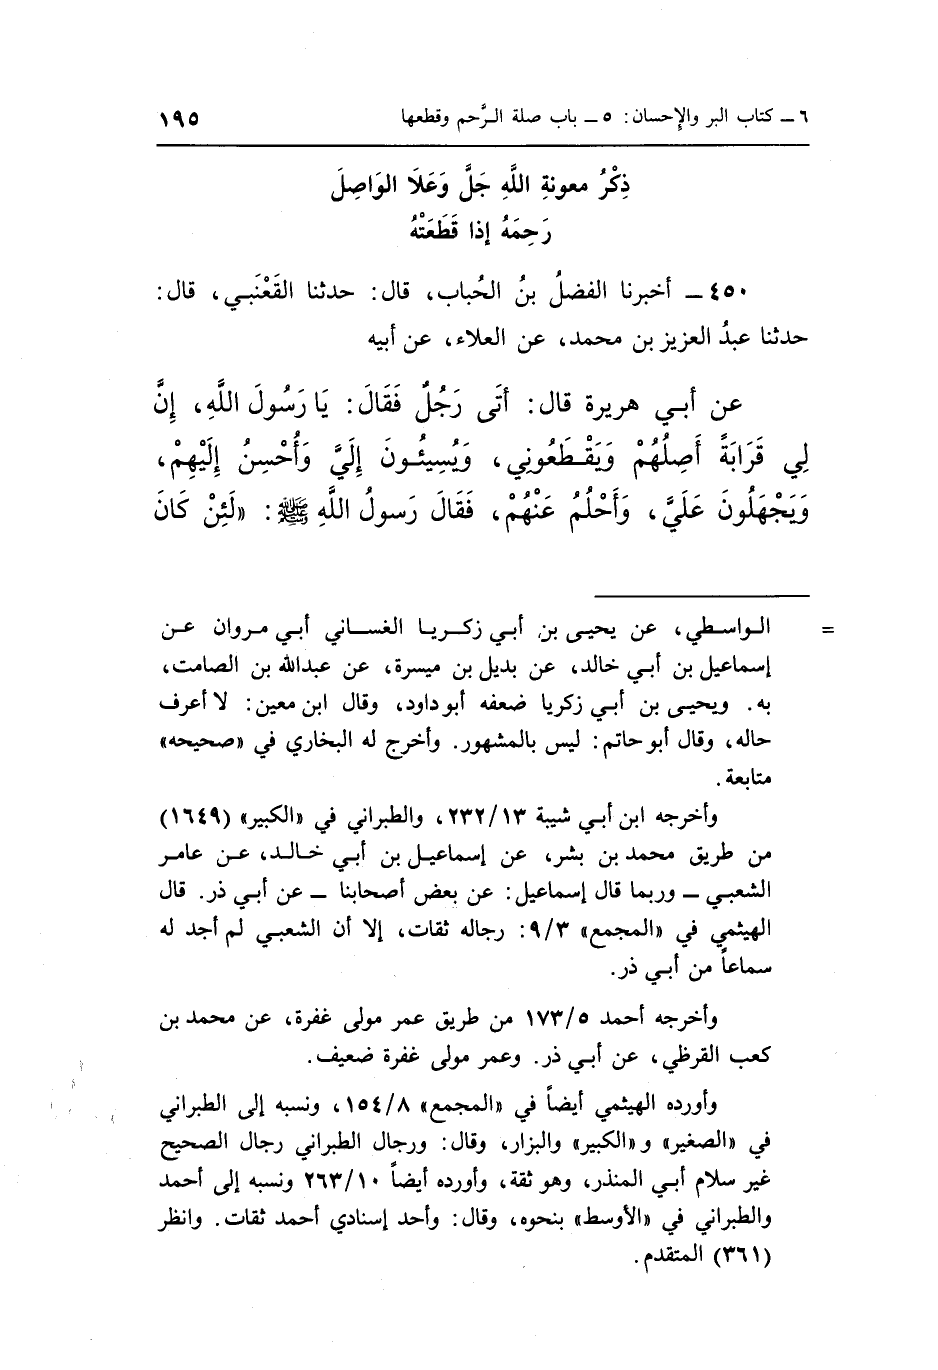 ٦ ـ كتاب البر والإحسان: ٥ ـ باب صلة الرَّحم وقطعها ١٩٥
ذِكْرُ معونةِ اللَّهِ جَلَّ وَعَلَا الوَاصِلَ
رَحِمَهُ إذا قَطَعَتْهُ
٤٥٠ ـ أخبرنا الفضلُ بنُ الحُباب، قال: حدثنا القَعْنَبي، قال:
حدثنا عبدُ العزيز بن محمد، عن العلاء، عن أبيه
عن أبي هريرة قال: أتَى رَجُلٌ فَقَالَ: يَا رَسُولَ اللَّهِ، إِنَّ
لِي قَرَابَةً أَصِلُهُمْ وَيَقْطَعُونِي، وَيُسِيئُونَ إِلَيَّ وَأُحْسِنُ إِلَيْهِمْ،
وَيَجْهَلُونَ عَلَيَّ، وَأَحْلُمُ عَنْهُمْ، فَقَالَ رَسولُ اللَّهِ ﷺ: «لَئِنْ كَانَ
= الواسطي، عن يحيى بن أبي زكريا الغساني أبي مروان عن
إسماعيل بن أبي خالد، عن بديل بن ميسرة، عن عبدالله بن الصامت،
به. ويحيى بن أبي زكريا ضعفه أبو داود، وقال ابن معين: لا أعرف
حاله، وقال أبو حاتم: ليس بالمشهور. وأخرج له البخاري في «صحيحه»
متابعة.
وأخرجه ابن أبي شيبة ٢٣٢/١٣، والطبراني في «الكبير» (١٦٤٩)
من طريق محمد بن بشر، عن إسماعيل بن أبي خالد، عن عامر
الشعبي ـ وربما قال إسماعيل: عن بعض أصحابنا ـ عن أبي ذر. قال
الهيثمي في «المجمع» ٩/٣: رجاله ثقات، إلا أن الشعبي لم أجد له
سماعاً من أبي ذر.
وأخرجه أحمد ١٧٣/٥ من طريق عمر مولى غفرة، عن محمد بن
كعب القرظي، عن أبي ذر. وعمر مولى غفرة ضعيف.
وأورده الهيثمي أيضاً في «المجمع» ١٥٤/٨، ونسبه إلى الطبراني
في «الصغير» و«الكبير» والبزار، وقال: ورجال الطبراني رجال الصحيح
غير سلام أبي المنذر، وهو ثقة، وأورده أيضاً ٢٦٣/١٠ ونسبه إلى أحمد
والطبراني في «الأوسط» بنحوه، وقال: وأحد إسنادي أحمد ثقات. وانظر
(٣٦١) المتقدم.